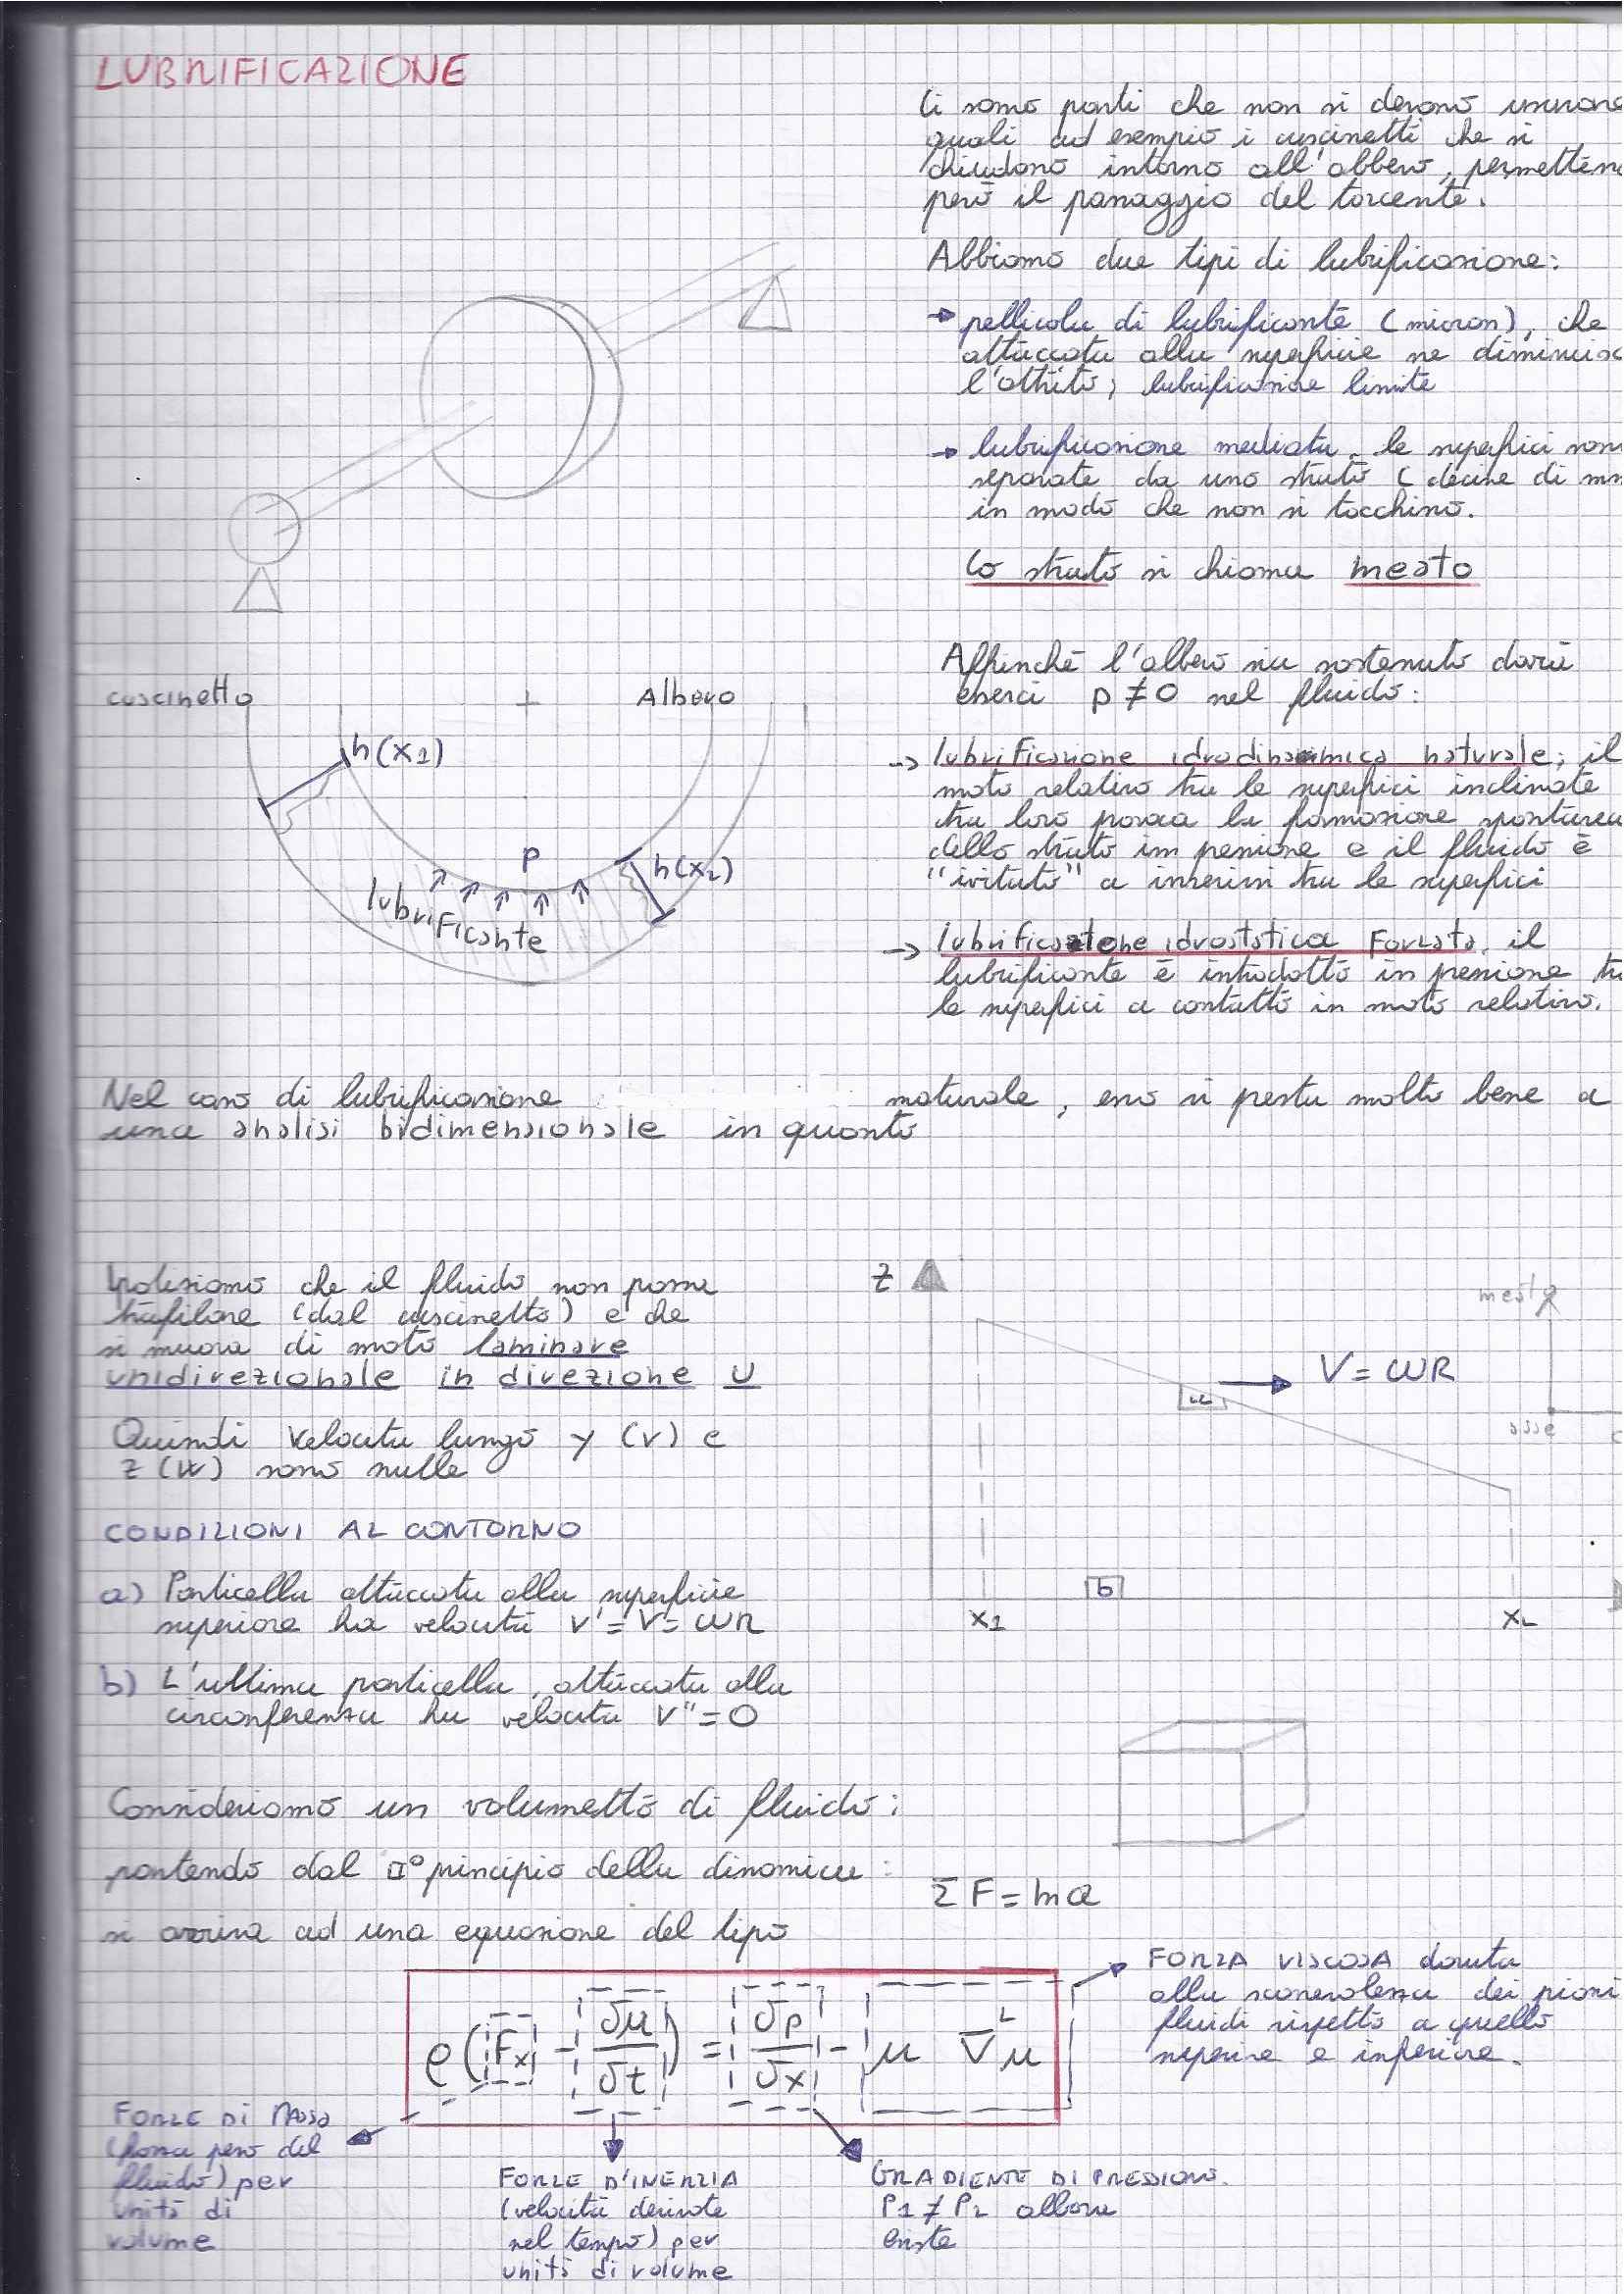 LUBRIFICAZIONE
Ci sono parti che non si devono usurare
quali ad esempio i cuscinetti che si
chiudono intorno all'albero, permetten
però il passaggio del torcente.
Abbiamo due tipi di lubrificazione:
→ pellicola di lubrificante (micron), che
attaccata alla superficie ne diminuisc
l'attrito; lubrificazione limite
→ lubrificazione mediata, le superfici son
separate da uno strato (decine di mm
in modo che non si tocchino.
Lo strato si chiama meato
Affinché l'albero sia sostenuto dovrà
esserci p ≠ 0 nel fluido:
cuscinetto
Albero
h(x1)
P
h(x2)
lubrificante
→ lubrificazione idrodinamica naturale; il
moto relativo tra le superfici inclinate
tra loro provoca la formazione spontanea
dello strato in pressione e il fluido è
"ivitato" a inserirsi tra le superfici
→ lubrificazione idrostatica forzata, il
lubrificante è introdotto in pressione tr
le superfici a contatto in moto relativo.
Nel caso di lubrificazione naturale, esso si presta molto bene a
una analisi bidimensionale in quanto
Ipotizziamo che il fluido non possa
trafilare (dal cuscinetto) e che
si muova di moto laminare
unidirezionale in direzione U
Quindi velocità lungo y (v) e
z (w) sono nulle
z
meato
V = ωR
a
asse
b
x1
x2
CONDIZIONI AL CONTORNO
a) Particella attaccata alla superficie
superiore ha velocità V' = V = ωR
b) L'ultima particella, attaccata alla
circonferenza ha velocità V" = 0
Consideriamo un volumetto di fluido:
partendo dal II° principio della dinamica:
ΣF = ma
si arriva ad una equazione del tipo
ρ(Fx - δu/δt) = δp/δx - μ ∇²u
FORZA VISCOSA dovuta
alla scorrevolezza dei piani
fluidi rispetto a quello
superiore e inferiore.
FORZE DI MASSA
(forza peso del
fluido) per
unità di
volume
FORZE D'INERZIA
(velocità derivata
nel tempo) per
unità di volume
GRADIENTE DI PRESSIONE.
P1 ≠ P2 allora
esiste